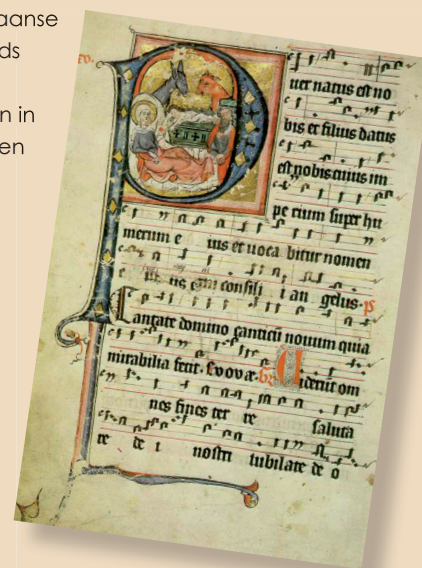 aanse
ds
n in
en
P
uer natus est no
bis et filius datus
est nobis cuius im
pe rium super hu
merum e ius et uoca bitur nomen
e ius consili i an gelus. ps
Cantate domino canticū nouum quia
mirabilia fecit. Evovæ. Gr Uiderūt om
nes fines ter re saluta
re de i nostri iubilate de o